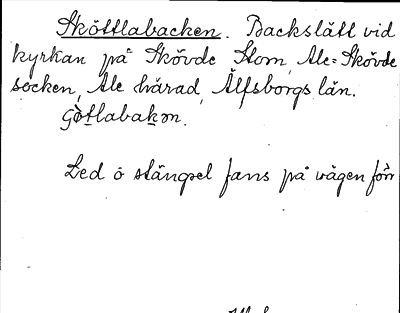 Sköttlabacken. Backslätt vid
kyrkan på Skövde Stom, Ale-Skövde
socken, Ale härad, Älfsborgs län.
Led o stängsel fans på vägen förr